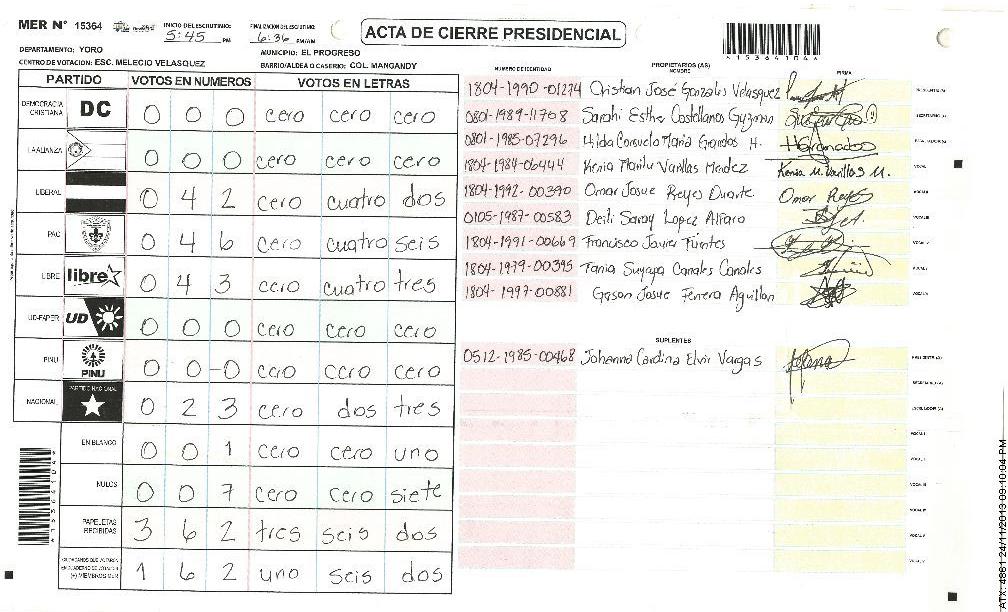 MER N° 15364
INICIO DEL ESCRUTINIO:
5:45 PM
FINALIZACION DEL ESCRUTINIO:
6:36 PM/AM
ACTA DE CIERRE PRESIDENCIAL
DEPARTAMENTO: YORO
MUNICIPIO: EL PROGRESO
CENTRO DE VOTACION: ESC. MELECIO VELASQUEZ
BARRIO/ALDEA O CASERIO: COL. MANGANDY
PARTIDO VOTOS EN NUMEROS VOTOS EN LETRAS
DEMOCRACIA CRISTIANA DC 0 0 0 cero cero cero
LA ALIANZA 0 0 0 cero cero cero
LIBERAL 0 4 2 cero cuatro dos
PAC 0 4 6 cero cuatro seis
LIBRE libre 0 4 3 cero cuatro tres
UD-FAPER UD 0 0 0 cero cero cero
PINU PINU 0 0 -0 cero cero cero
NACIONAL PARTIDO NACIONAL 0 2 3 cero dos tres
EN BLANCO 0 0 1 cero cero uno
NULOS 0 0 7 cero cero siete
PAPELETAS RECIBIDAS 3 6 2 tres seis dos
(+) MIEMBROS MER 1 6 2 uno seis dos
NUMERO DE IDENTIDAD PROPIETARIOS (AS) NOMBRE FIRMA
1804-1990-01274 Cristian José Gonzales Velasquez
0801-1989-11708 Sarahi Esther Castellanos Guzman
0801-1985-07296 Hilda Consuelo Maria Granados H. HGranados
1804-1984-06444 Kenia Marilu Varillas Mendez Kenia M. Varillas M.
1804-1992-00390 Omar Josue Reyes Duarte Omar Reyes
0105-1987-00583 Deili Saray Lopez Alfaro
1804-1991-00669 Francisco Javier Fuentes
1804-1979-00395 Tania Suyapa Canales Canales
1804-1997-00881 Gason Josue Ferrera Aguillon
SUPLENTES
0512-1985-00468 Johanna Carolina Elvir Vargas
ATX: 4861 24/11/2013 09:10:04 PM